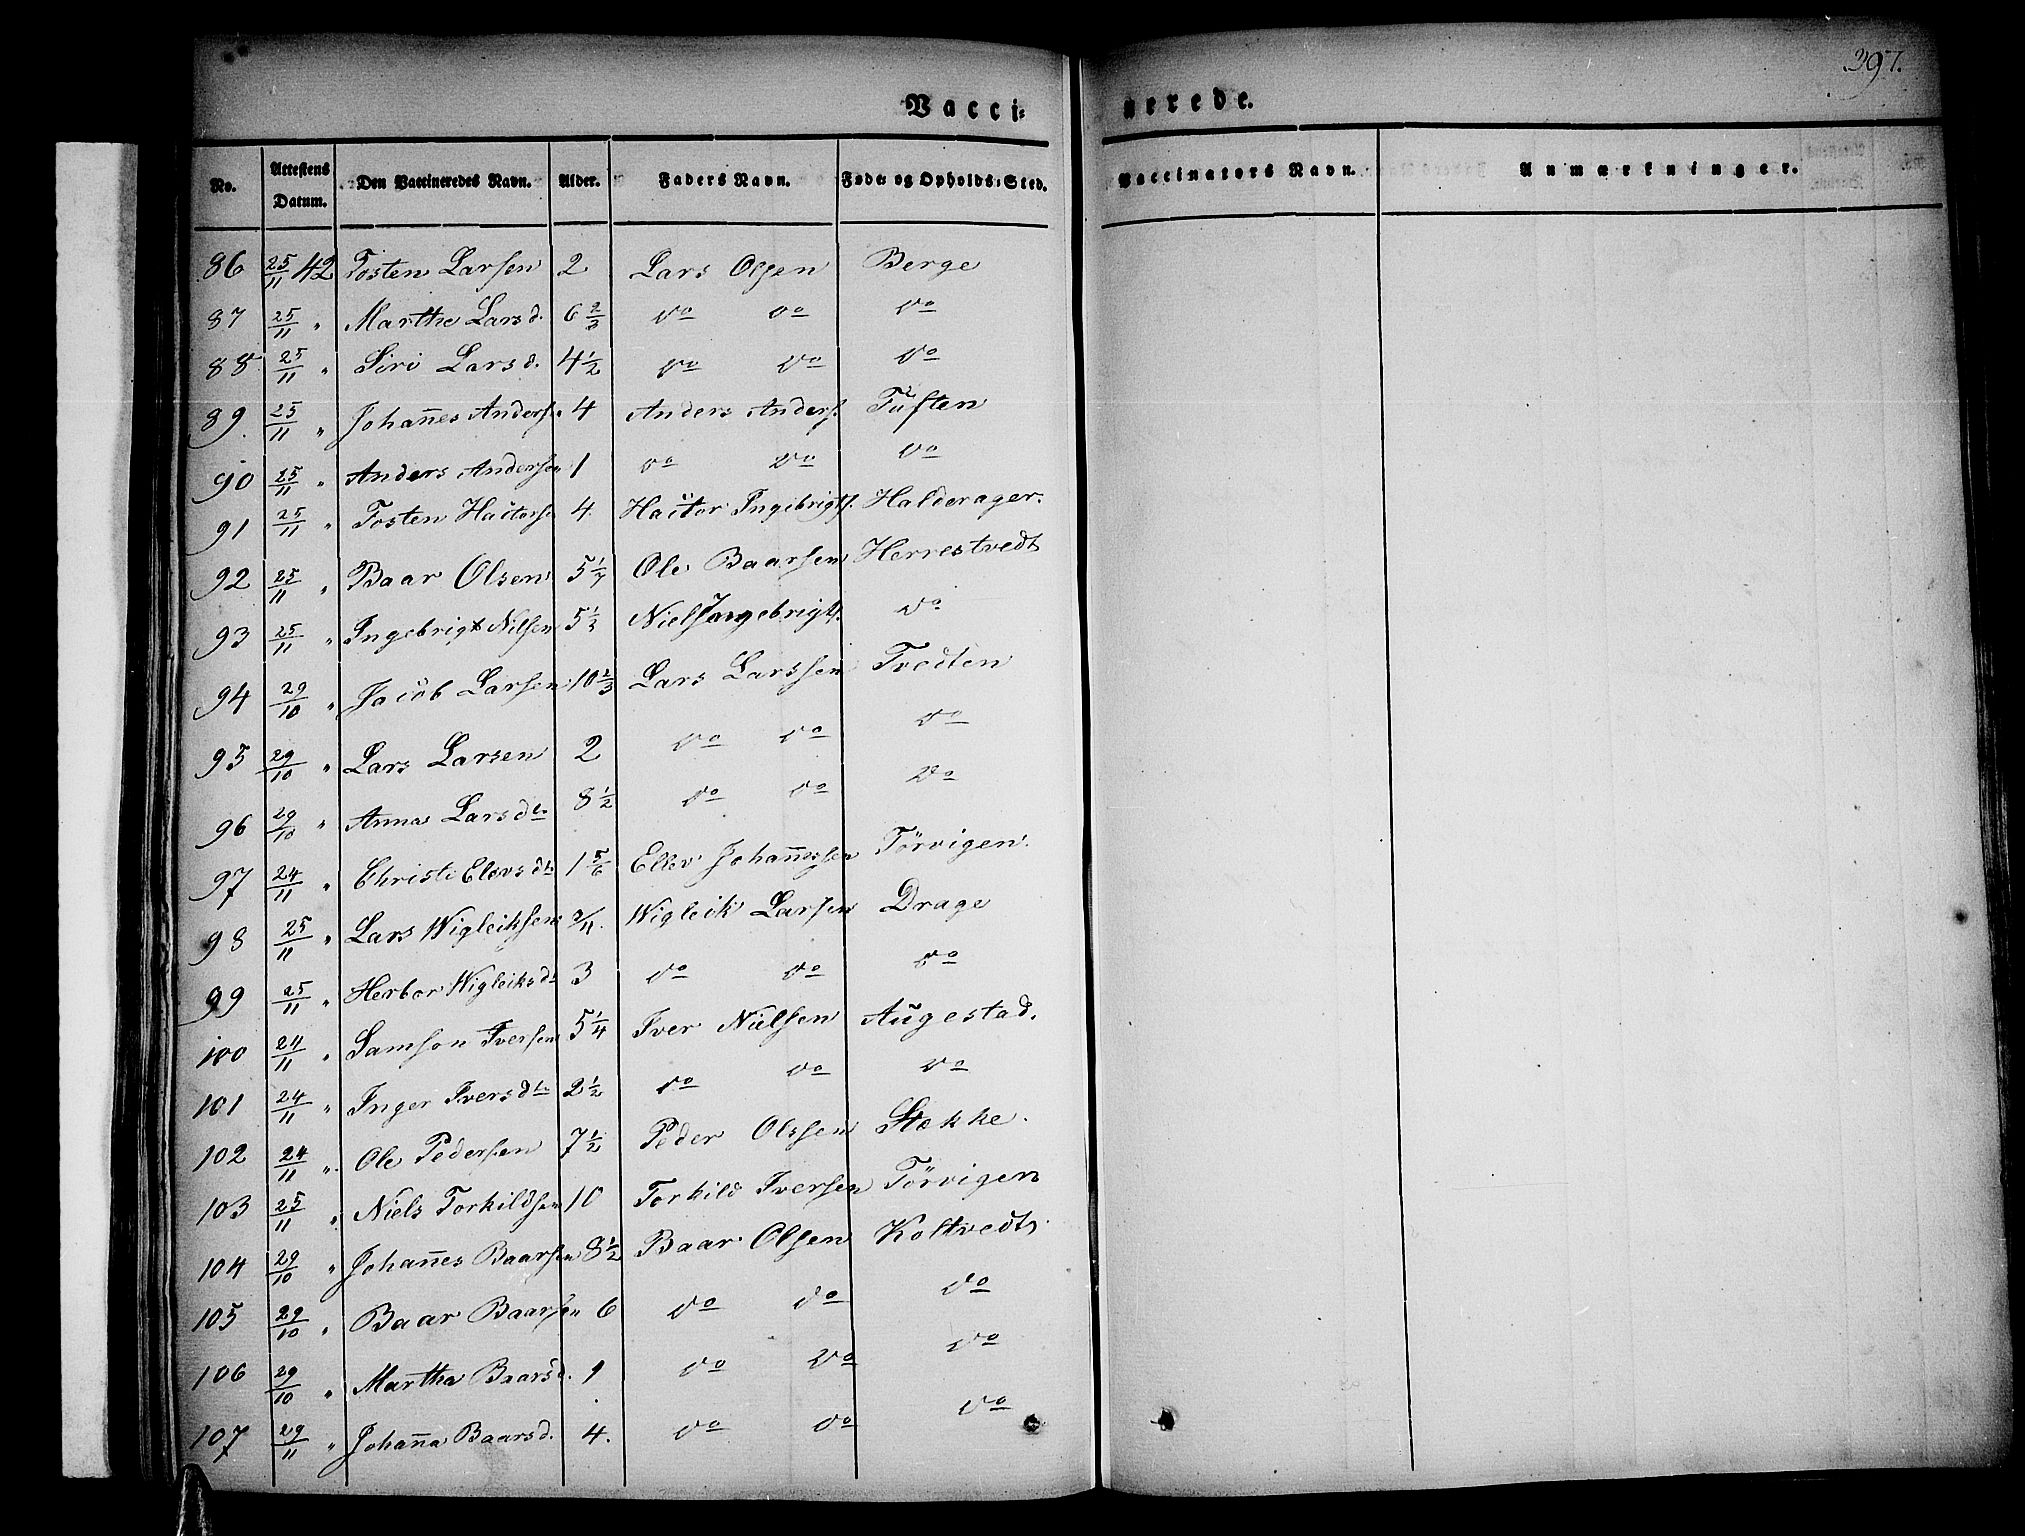 397.
Vacci=
nerede.
No. Attestens Datum. Den Vaccineredes Navn. Alder. Faders Navn. Føde= og Opholds=Sted. Vaccinators Navn. Anmærkninger.
86 25/11 42 Tosten Larsen 2 Lars Olsen Berge
87 25/11 " Marthe Larsd. 6 2/3 do do do
88 25/11 " Siri Larsd. 4 1/2 do do do
89. 25/11 " Johañes Anders. 4 Anders Anders. Tuften
90 25/11 " Anders Andersen 1 do do do
91 25/11 " Tosten Hactors 4. Hactor Ingebrigts. Halderager.
92 25/11 " Baar Olsen 5 1/7 Ole Baarsen Herrestvedt
93 25/11 " Ingebrigt Nilsen 5 1/3 Niels Ingebrigts. do
94 29/10 " Jacob Larsen 10 2/3 Lars Larssen Tvedten
95 29/10 " Lars Larsen 2 do do do
96 29/10 " Anna Larsdtr 8 1/2 do do do
97 24/11 " Christi Elevsdr 1 5/6 Ellev Johañessen Törvigen.
98 25/11 " Lars Wigleiksen 3/4. Wigleik Larsen Drage
99 25/11 " Herbor Wigleiksdr 3 do do do
100 24/11 " Samson Iversen 5 1/4 Iver Nielsen Augestad.
101 24/11 " Inger Iversdtr 2 1/2 do do do
102 24/11 " Ole Pedersen 7 1/2 Peder Olssen Stække.
103 25/11 " Niels Torkildsen 10 Torkild Iversen Törvigen
104 29/10 " Johañes Baarsen 8 1/2 Baar Olsen Koltvedt
105 29/10 " Baar Baarsen 6 do do do
106 29/10 " Martha Baarsd. 1 do do do
107 29/11 " Johaña Baarsd. 4. do do do